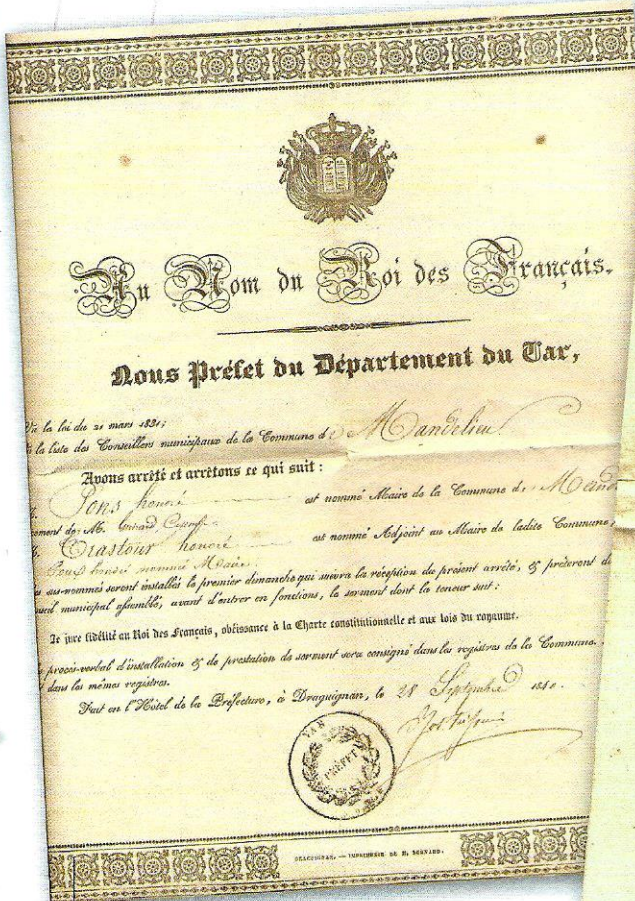 Au Nom du Roi des Français.
Nous Préfet du Département du Var,
Vu la loi du 21 mars 1831;
la liste des Conseillers municipaux de la Commune d Mandelieu
Avons arrêté et arrêtons ce qui suit :
Pons honoré est nommé Maire de la Commune de Mand
ement de M.
Crastour honoré est nommé Adjoint au Maire de ladite Commune,
nommé Maire
es sus-nommés seront installés le premier dimanche qui suivra la réception du présent arrêté, & prêteront de
seil municipal assemblé, avant d'entrer en fonctions, le serment dont la teneur suit :
Je jure fidélité au Roi des Français, obéissance à la Charte constitutionnelle et aux lois du royaume.
procès-verbal d'installation & de prestation de serment sera consigné dans les registres de la Commune.
dans les mêmes registres.
Fait en l'Hôtel de la Préfecture, à Draguignan, le 28 Septembre 1840.
VAR
PRÉFET
DRAGUIGNAN. — IMPRIMERIE DE H. BERNARD.